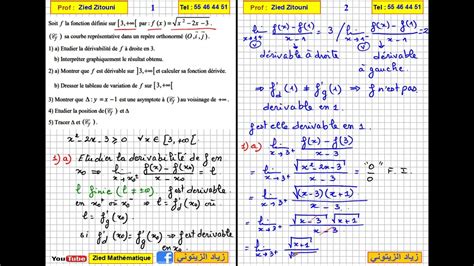 Prof : Zied Zitouni 1 Tel : 55 46 44 51
Soit f la fonction définie sur [3, +∞[ par : f(x) = √(x² - 2x - 3) .
(𝒞f) sa courbe représentative dans un repère orthonormé (O, i, j).
1) a) Etudier la dérivabilité de f à droite en 3.
b) Interpréter graphiquement le résultat obtenu.
2) a) Montrer que f est dérivable sur ]3, +∞[ et calculer sa fonction dérivée.
b) Dresser le tableau de variation de f sur [3, +∞[.
3) Montrer que Δ : y = x - 1 est une asymptote à (𝒞f) au voisinage de +∞ .
4) Etudier la position de (𝒞f) et Δ
5) Tracer Δ et (𝒞f).
x² - 2x - 3 ≥ 0 ∀x ∈ [3, +∞[.
1) a) Etudier la derivabilité de f en
x₀ ⇔ lim x→x₀ f(x) - f(x₀) / x - x₀ =
l finie (l ≠ ±∞) f est derivable
en x₀ où x₀ ⇒ l
l = f'(x₀)
si f'd(x₀) = f'g(x₀) ⇒ f est
derivable en x₀
YouTube Zied Mathematique زياد الزيتوني
Prof : Zied Zitouni 2 Tel : 55 46 44 51
lim x→1+ f(x) - f(1) / x - 1 = 3 / lim x→1- f(x) - f(1) / x - 1 = 2
dérivable à droite
dérivable à gauche.
⇒ f'd(1) ≠ f'g(1) ⇒ f n'est pas
derivable en 1.
f est elle derivable en 1.
1) a) lim x→3+ f(x) - f(3) / x - 3
= lim x→3+ √(x² - 2x - 3) / x - 3 = "0/0" F.I.
= lim x→3+ √((x-3)(x+1)) / x - 3
= lim x→3+ √(x-3) √(x+1) / x - 3
= lim x→3+ √(x+1)
YouTube Zied Mathematique زياد الزيتوني